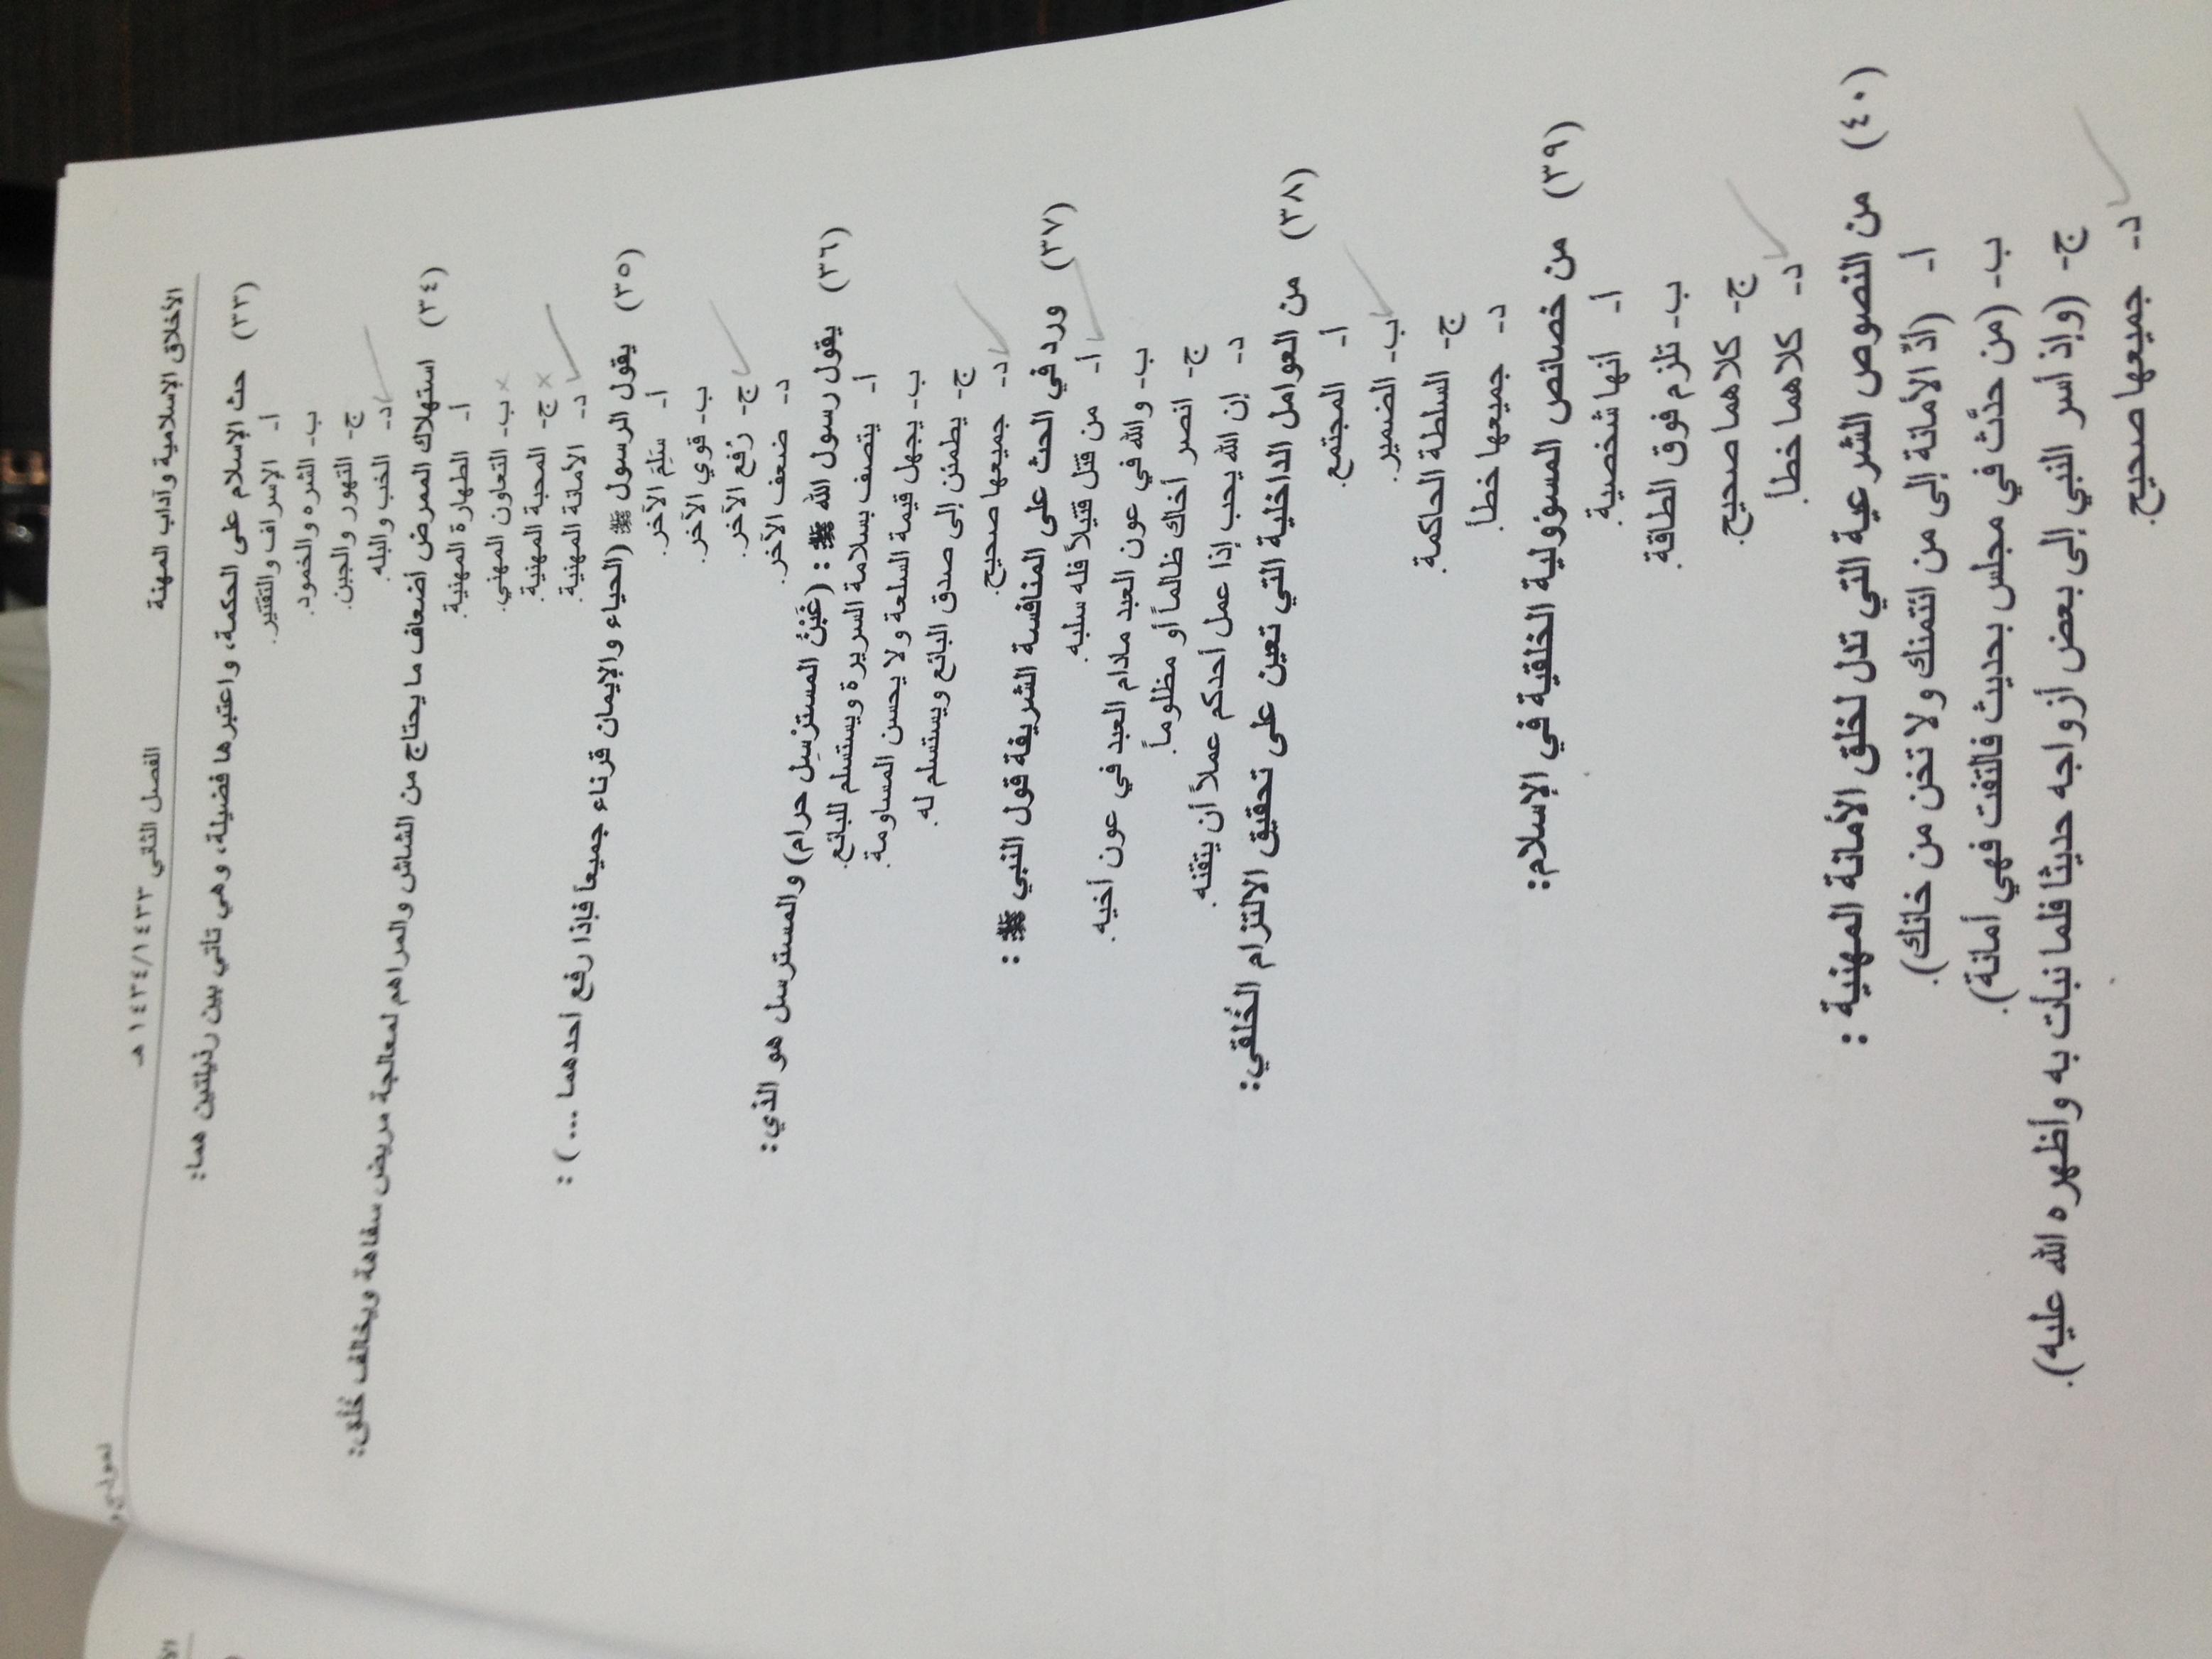 الأخلاق الإسلامية وآداب المهنة
الفصل الثاني ١٤٣٤/١٤٣٣ هـ
(٣٣) حث الإسلام على الحكمة، واعتبرها فضيلة، وهي تأتي بين رذيلتين هما:
أ- الإسراف والتقتير.
ب- الشره والخمود.
ج- التهور والجبن.
د- الخب والبله.
(٣٤) استهلاك الممرض أضعاف ما يحتاج من الشاش والمراهم لمعالجة مريض سفاهة ويخالف خُلق:
أ- الطهارة المهنية.
ب- التعاون المهني.
ج- المحبة المهنية.
د- الأمانة المهنية.
(٣٥) يقول الرسول ﷺ (الحياء والإيمان قرناء جميعاً فإذا رفع أحدهما ... ) :
أ- سَلِمَ الآخر.
ب- قوي الآخر.
ج- رُفع الآخر.
د- ضعف الآخر.
(٣٦) يقول رسول الله ﷺ : (غَبْنُ المسترْسِل حرام) والمسترسل هو الذي:
أ- يتصف بسلامة السريرة ويستسلم للبائع.
ب- يجهل قيمة السلعة ولا يحسن المساومة.
ج- يطمئن إلى صدق البائع ويستسلم له.
د- جميعها صحيح.
(٣٧) ورد في الحث على المنافسة الشريفة قول النبي ﷺ :
أ- من قتل قتيلاً فله سلبه.
ب- والله في عون العبد مادام العبد في عون أخيه.
ج- انصر أخاك ظالماً أو مظلوماً.
د- إن الله يحب إذا عمل أحدكم عملاً أن يتقنه.
(٣٨) من العوامل الداخلية التي تعين على تحقيق الالتزام الخُلقي:
أ- المجتمع.
ب- الضمير.
ج- السلطة الحاكمة.
د- جميعها خطأ.
(٣٩) من خصائص المسؤولية الخلقية في الإسلام:
أ- أنها شخصية.
ب- تلزم فوق الطاقة.
ج- كلاهما صحيح.
د- كلاهما خطأ.
(٤٠) من النصوص الشرعية التي تدل لخلق الأمانة المهنية :
أ- (أدِّ الأمانة إلى من ائتمنك ولا تخن من خانك).
ب- (من حدَّث في مجلس بحديث فالتفت فهي أمانة).
ج- (وإذ أسر النبي إلى بعض أزواجه حديثا فلما نبأت به وأظهره الله عليه).
د- جميعها صحيح.